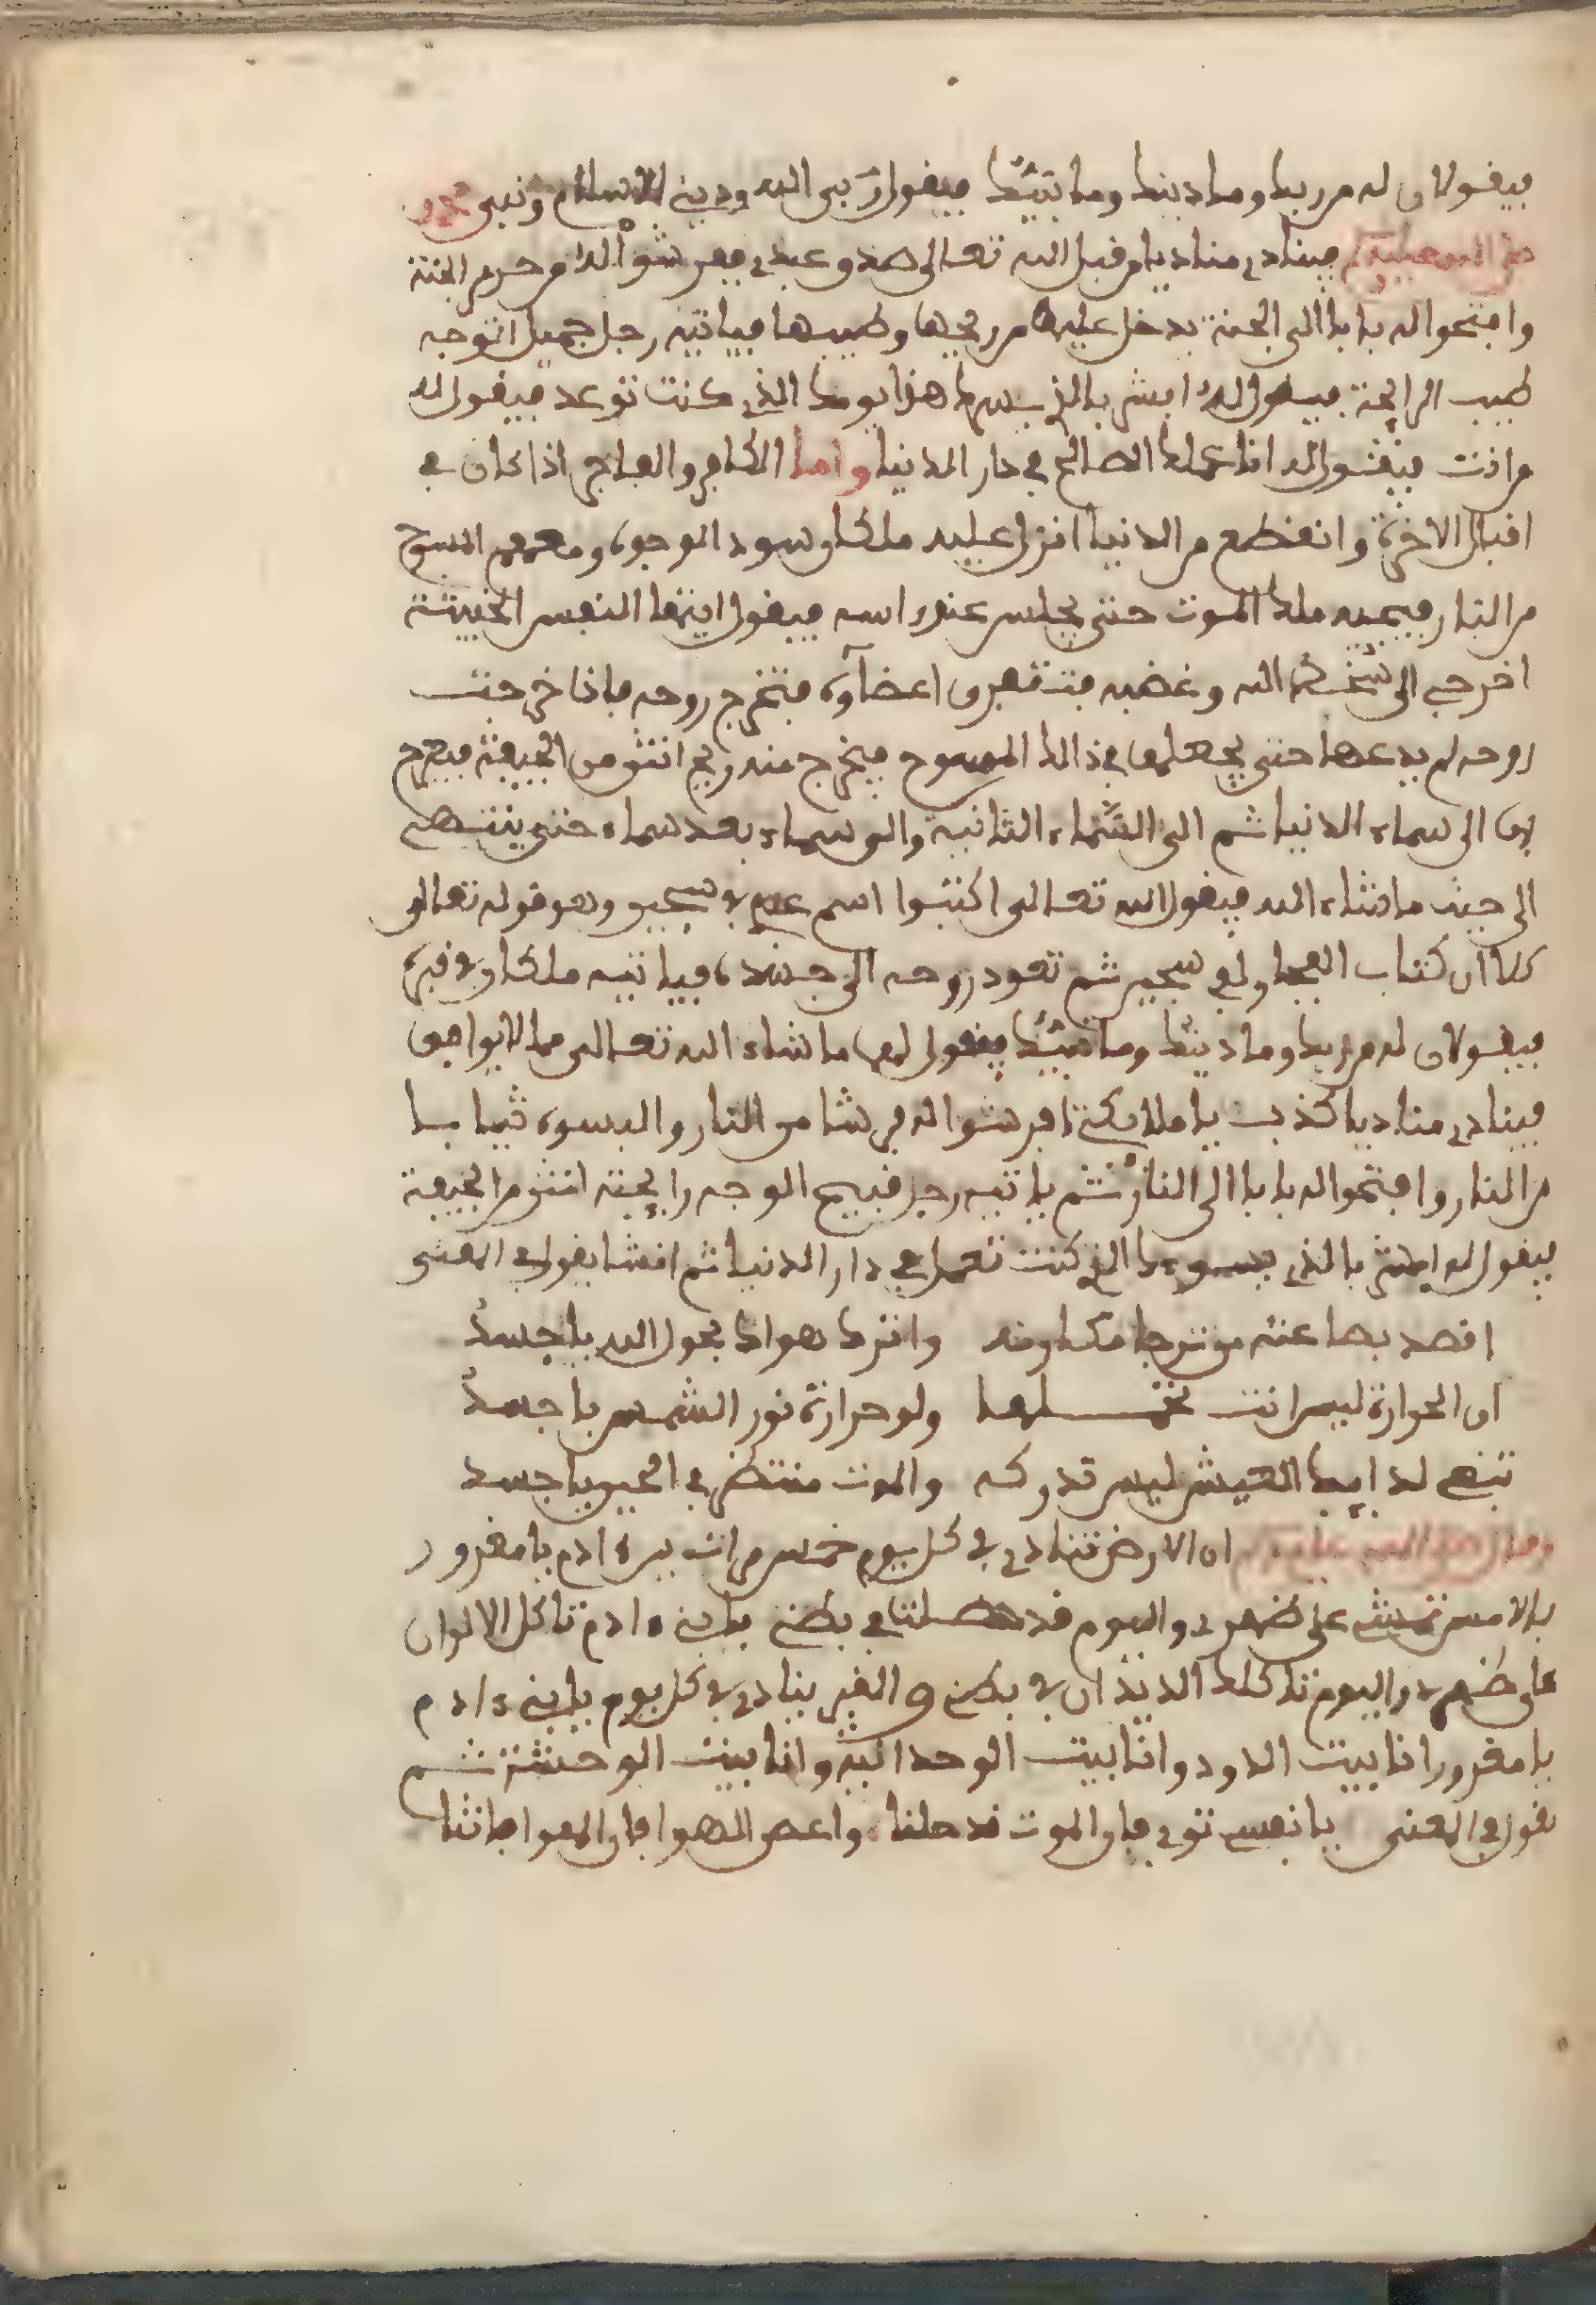 فيقولان له من ربك وما دينك وما نبيك فيقول ربي الله وديني الاسلام ونبيي محمد
صلى الله عليه وسلم فينادي مناديا من قبل الله تعالى صدق عبدي فعرشوا له من حرير الجنة
وافتحوا له بابا الى الجنة يدخل عليه من ريحها وطيبها فياتيه رجل جميل الوجه
طيب الرايحة فيقول له ابشر بالذي يسرك هذا يومك الذي كنت توعد فيقول له
من انت فيقول له انا عملك الصالح في دار الدنيا واما الكافر والفاجر اذا كان في
اقبال الاخرة وانقطع من الدنيا انزل عليه ملكان سود الوجوه ومعهم المسوح
من النار فيجيه ملك الموت حتى يجلس عند راسه فيقول ايتها النفس الخبيثة
اخرجي الى سخط الله وغضبه فتتفرق اعضاوه فتخرج روحه فاذا خرجت
روحه لم يدعها حتى يجعلها في ذالك المسوح فيخرج منه ريح انتن من الجيفة فيعرج
بها الى سماء الدنيا ثم الى السماء الثانية والى سماء بعد سماء حتى ينتهي
الى حيث ما شاء الله فيقول الله تعالى اكتبوا اسم عبدي في سجين وهو قوله تعالى
كلا ان كتاب الفجار لفي سجين ثم تعود روحه الى جسده فياتيه ملكان في قبره
فيقولان له من ربك وما دينك وما نبيك فيقول لهما ما شاء الله تعالى مما لا يوافق
فينادي مناديا كذب يا ملايكتي افرشوا له فرشا من النار والبسوه ثيابا
من النار وافتحوا له بابا الى النار ثم ياتيه رجل قبيح الوجه رايحته انتن من الجيفة
فيقول له ابشر بالذي يسوءك الذي كنت تعمل في دار الدنيا ثم انشا يقول في المعنى
اقصد بها عنه من ترجا مكارمه واترك هواك بحول الله يا جسد
ان الحرارة ليس انت تحملها ولو حرارة نور الشمس يا جسد
تبغي لذايذ العيش ليس تدركه والموت منتظر في الحين يا جسد
وقال صلى الله عليه وسلم ان الارض تنادي في كل يوم خمس مرات يبن ءادم يا مغرور
بالامس تمشي على ظهري واليوم قد حصلت في بطني يا بني ءادم تاكل الالوان
على ظهري واليوم تاكلك الديدان في بطني والقبر ينادي في كل يوم يا بني ءادم
يا مغرور انا بيت الدود وانا بيت الوحدانية وانا بيت الوحشة ثم
يقول في المعنى يا نفس توبي فان الموت قد حلنا واعص الهوا فان الهوا فاتنا